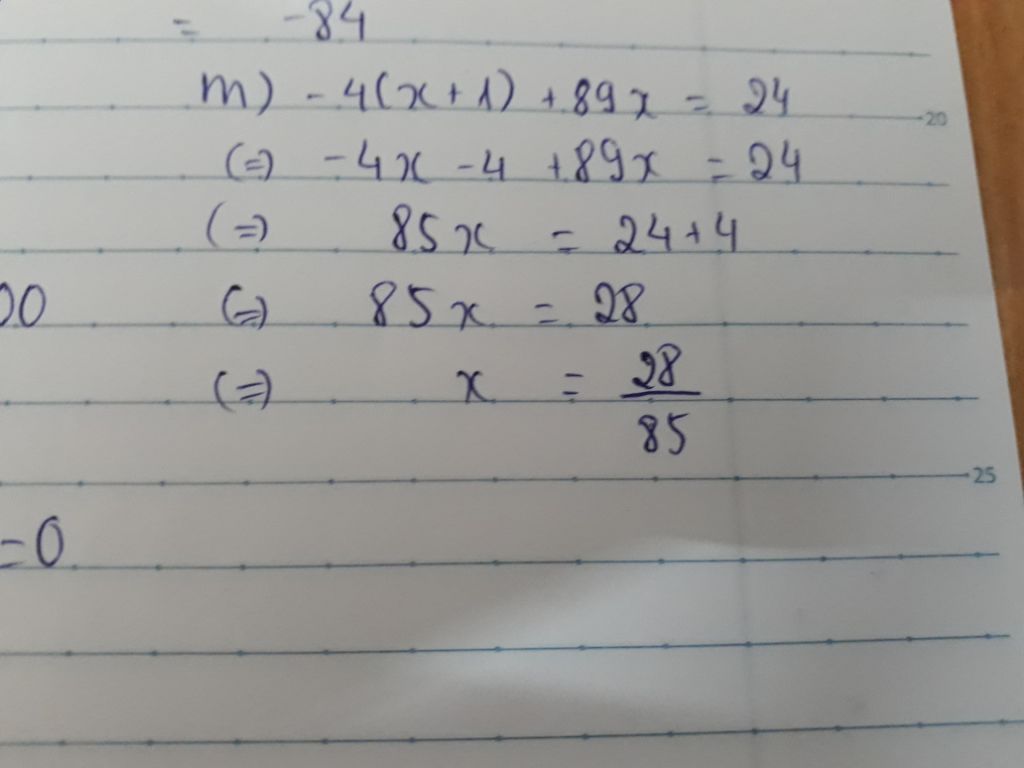 = -84
m) - 4(x+1) + 89x = 24
20
(=) -4x -4 +89x = 24
(=) 85x = 24+4
00 (=) 85x = 28
(=) x = 28/85
25
=0